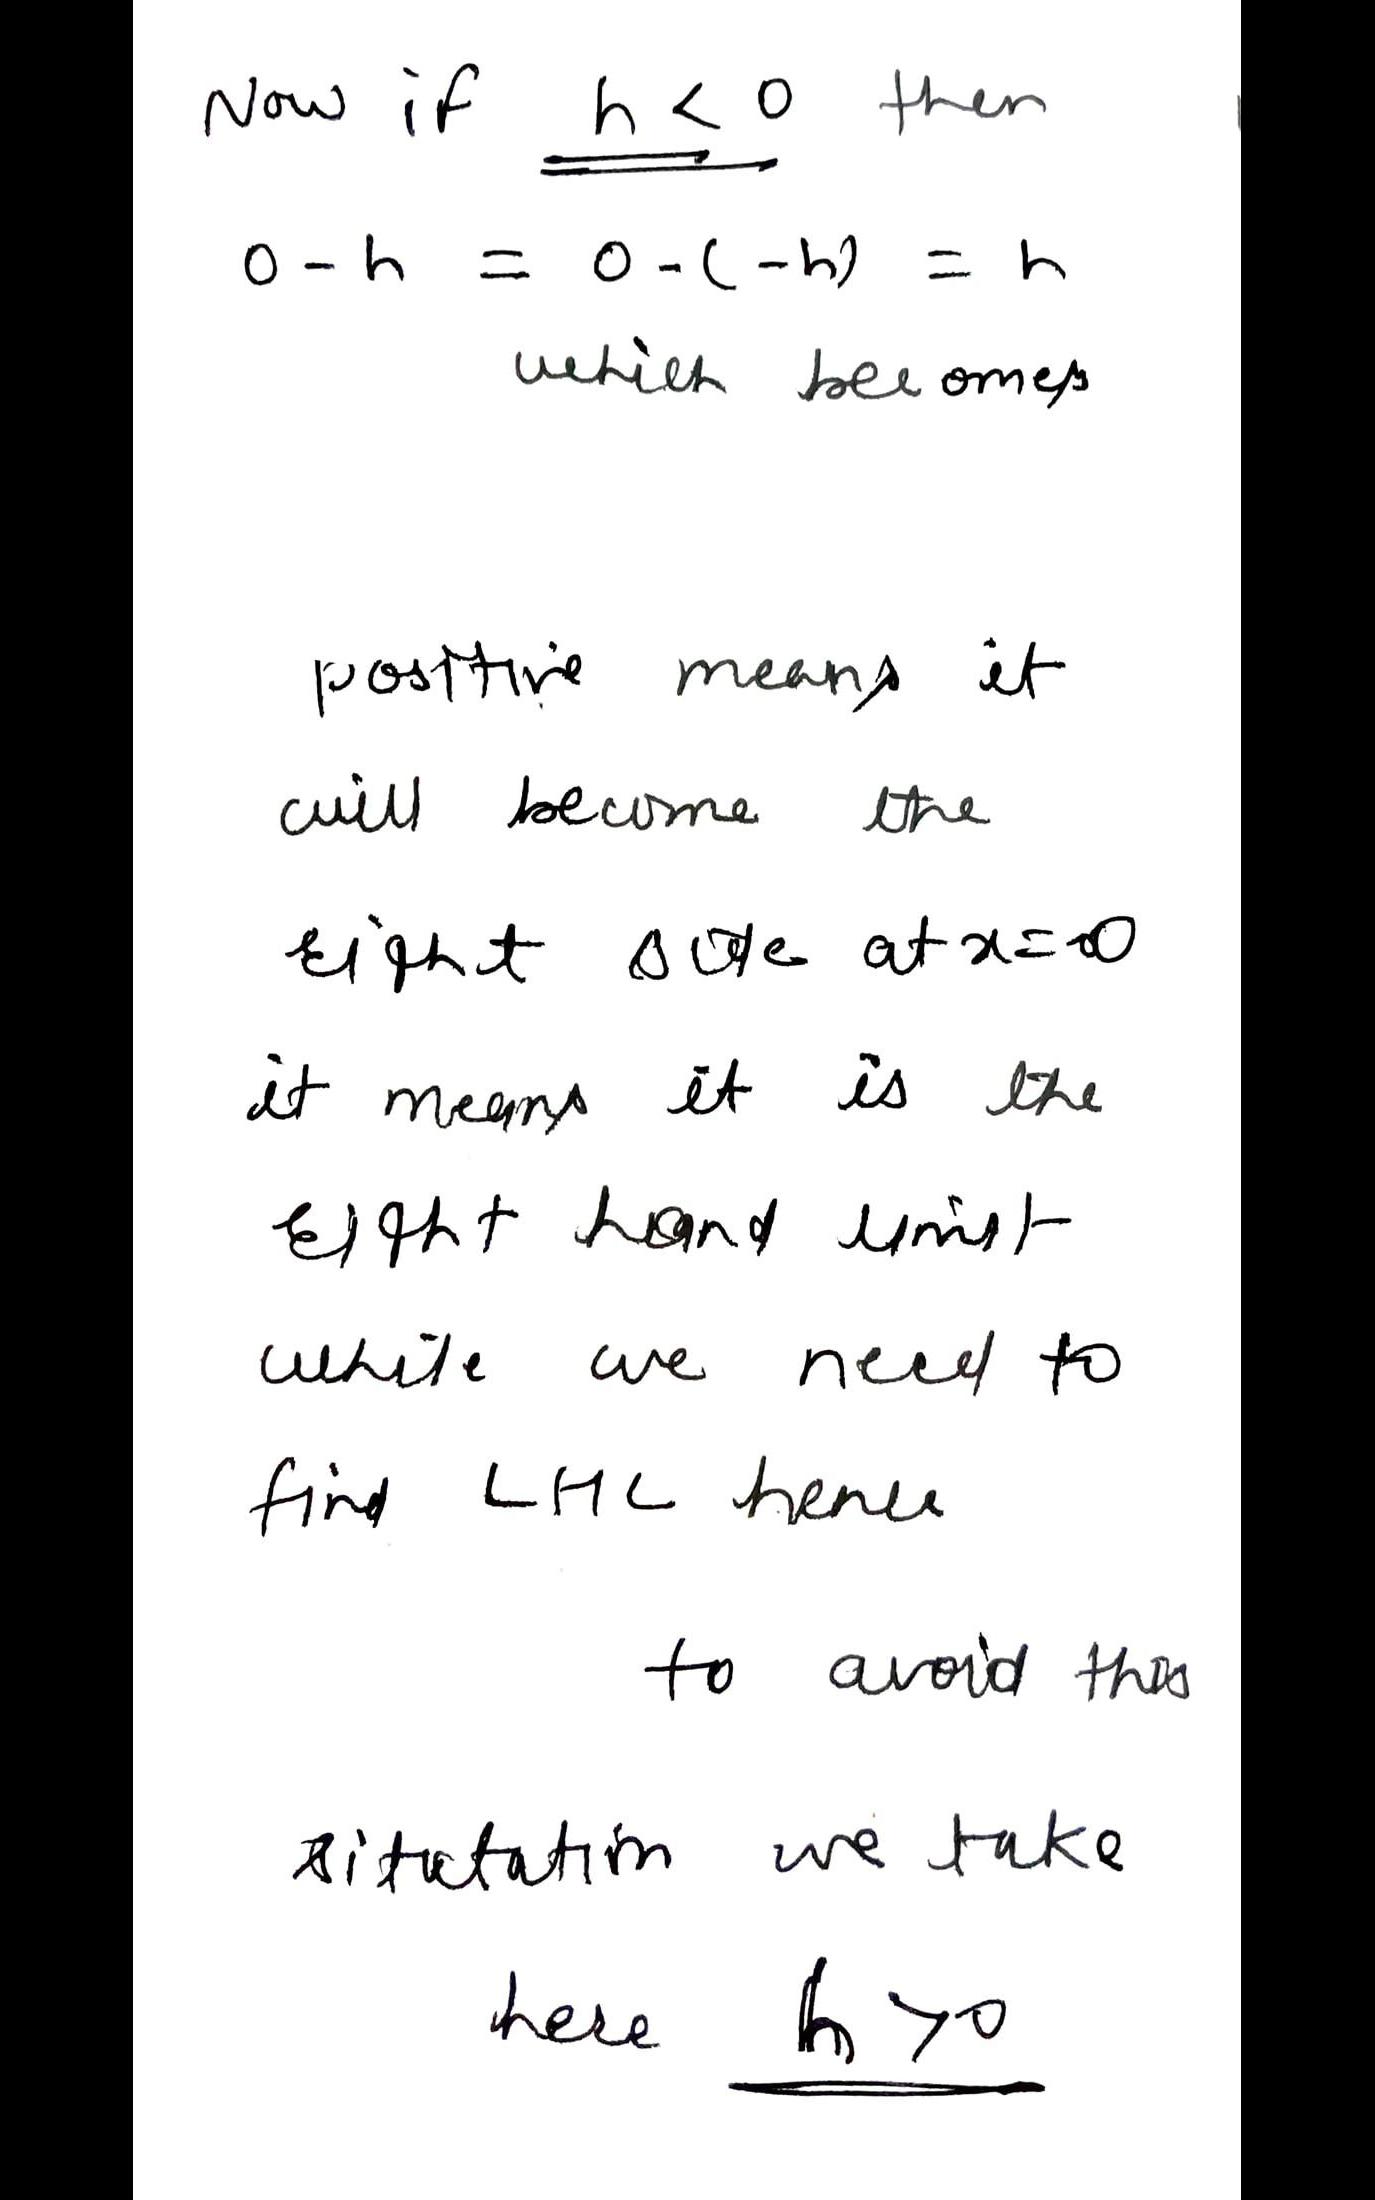 Now if h < 0 then
0 - h = 0 - (-h) = h
which becomes
positive means it
will become the
right side at x = 0
it means it is the
right hand limit
while we need to
find LHL hence
to avoid this
situtation we take
here h > 0